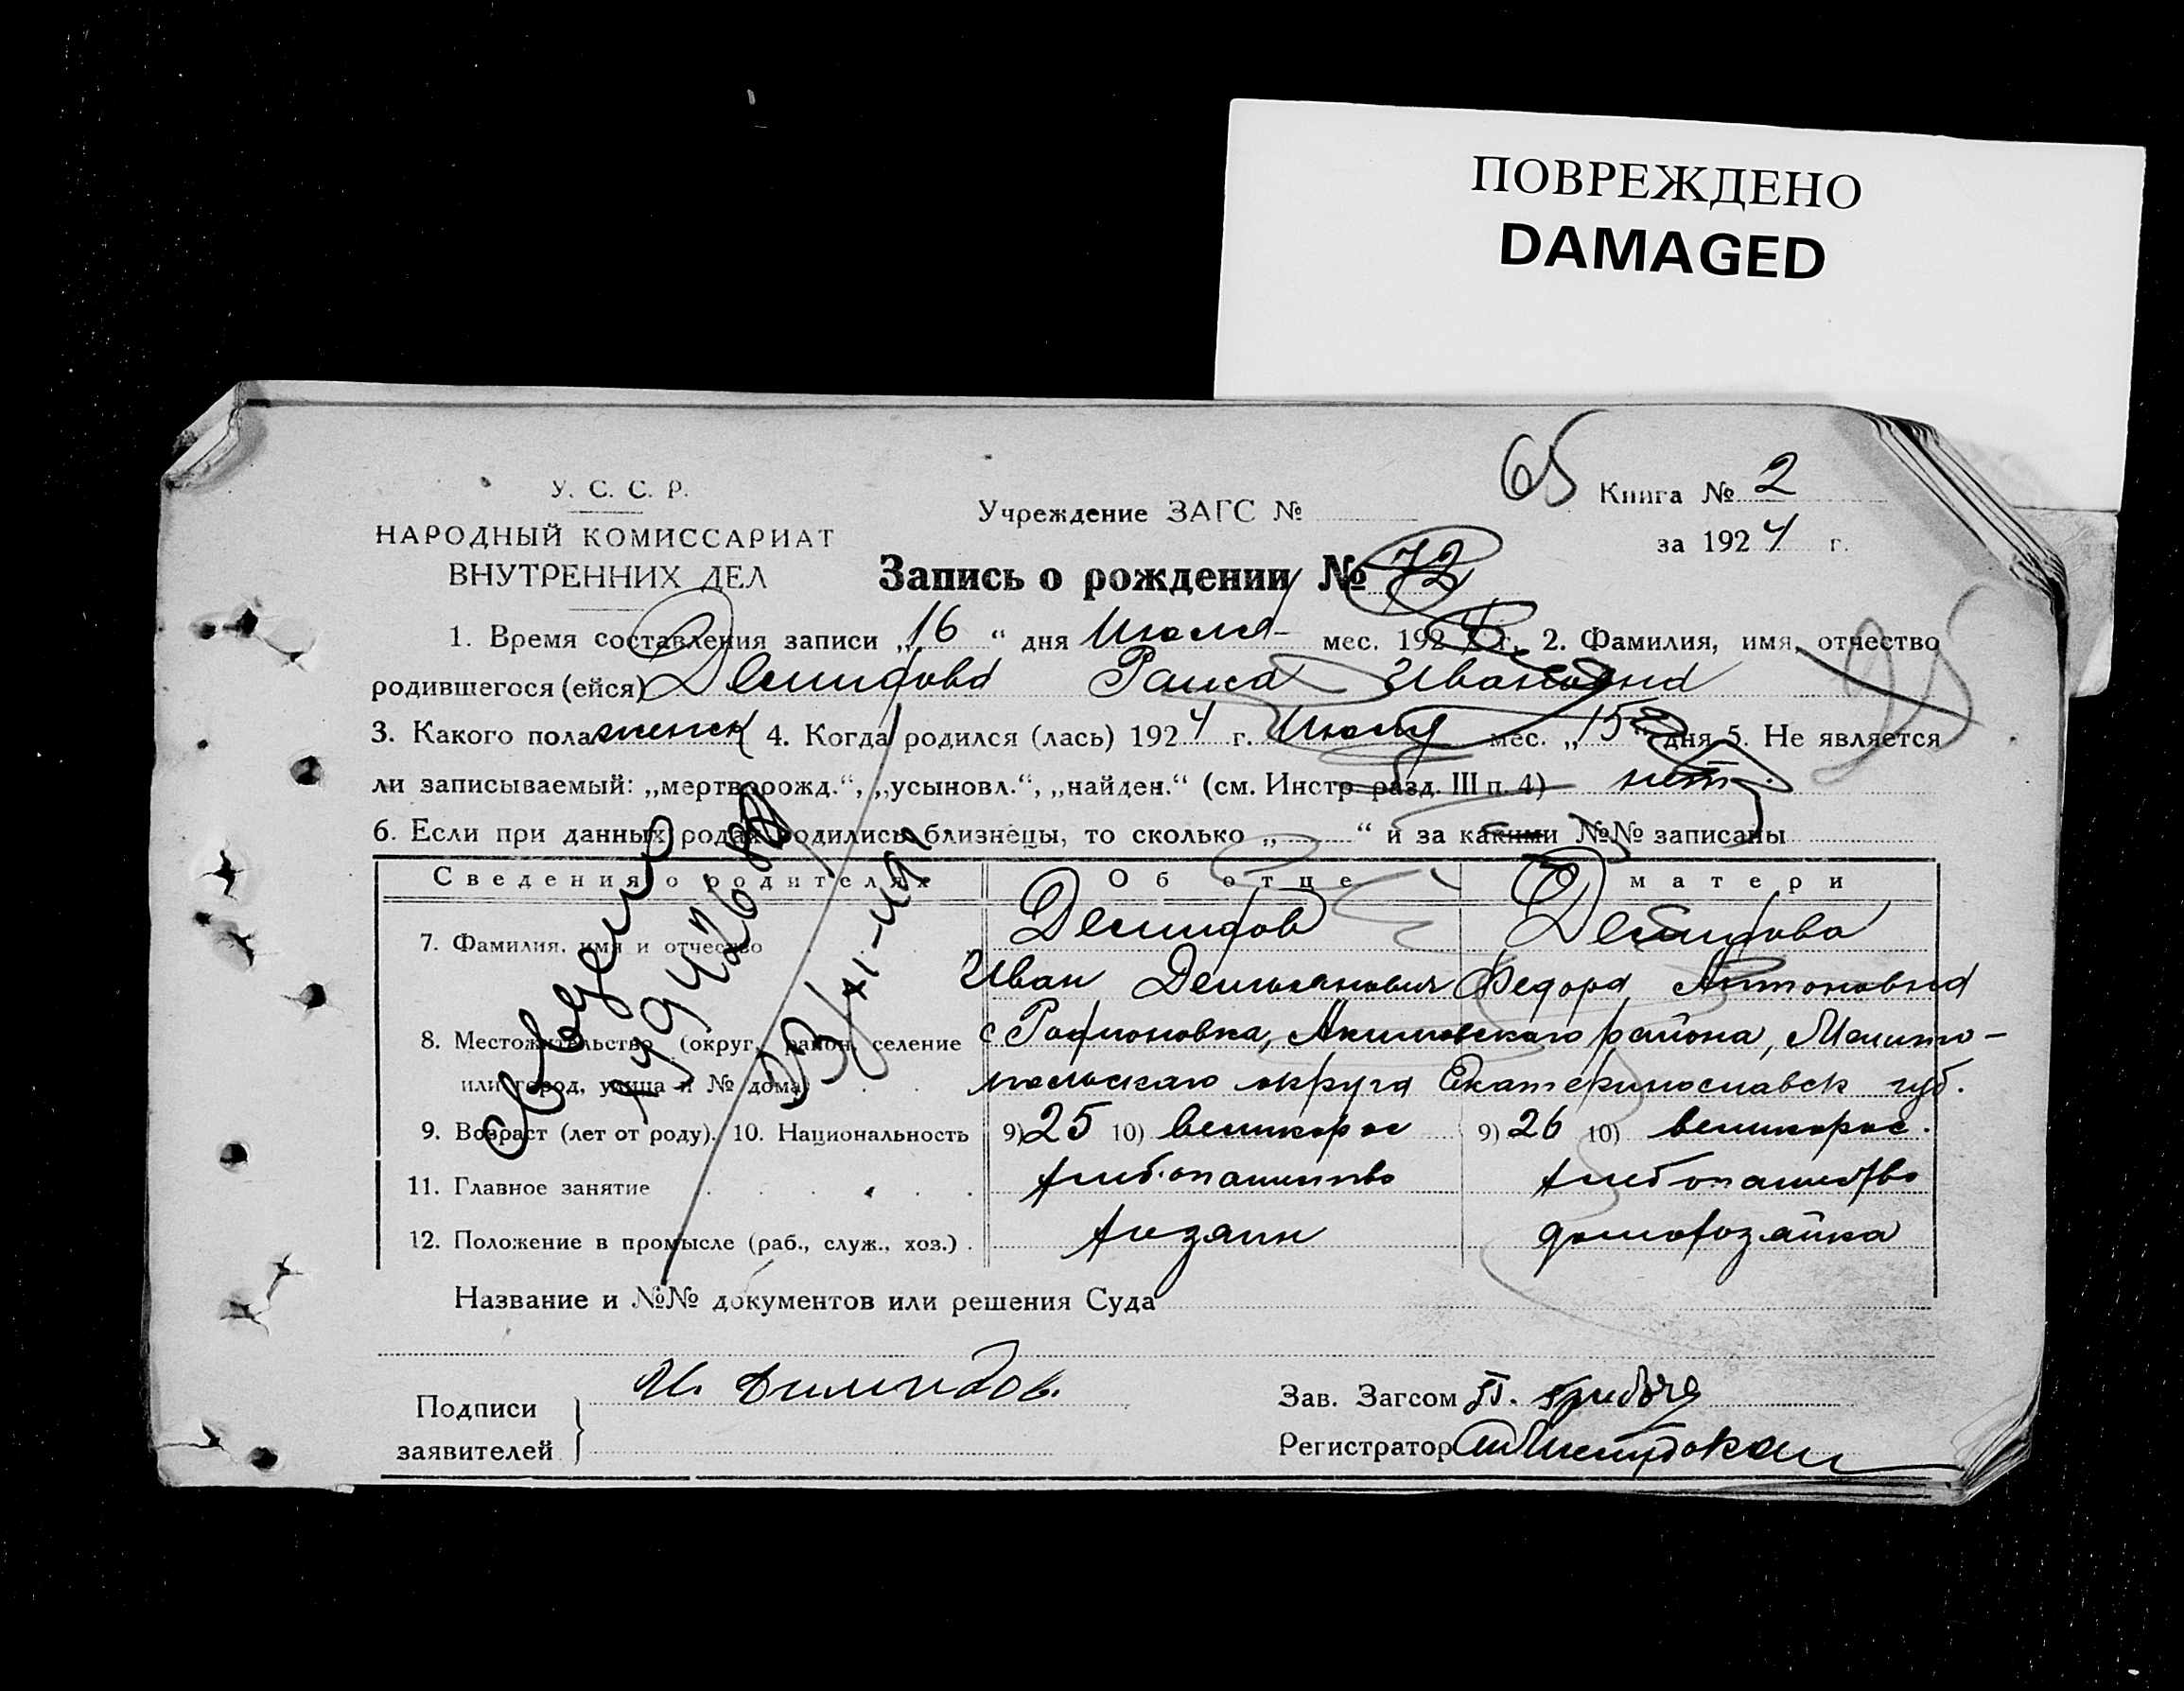 ПОВРЕЖДЕНО
DAMAGED
65 Книга № 2
У. С. С. Р.
Учреждение ЗАГС №
за 1924 г.
НАРОДНЫЙ КОМИССАРИАТ
ВНУТРЕННИХ ДЕЛ
Запись о рождении № 72
1. Время составления записи „16“ дня Июля мес. 1924 г. 2. Фамилия, имя, отчество
родившегося (ейся) Демидова Раиса Ивановна
3. Какого пола женск 4. Когда родился (лась) 1924 г. Июля мес. „15“ дня 5. Не является
ли записываемый: „мертворожд.“, „усыновл.“, „найден.“ (см. Инстр. разд. III п. 4) нет.
6. Если при данных родах родились близнецы, то сколько „ “ и за какими №№ записаны
Сведения о родителях Об отце О матери
7. Фамилия, имя и отчество Демидов Демидова
Иван Демьянович Федора Антоновна
8. Местожительство (округ, район, селение с Родионовка, Акимовскаго района, Мелито-
или город, улица и № дома) польскаго округа Екатеринославск губ.
9. Возраст (лет от роду). 10. Национальность 9) 25 10) великорос 9) 26 10) великорос.
11. Главное занятие хлебопашество хлебопашество
12. Положение в промысле (раб., служ., хоз.) хозяин домохозяйка
Название и №№ документов или решения Суда
Подписи
заявителей
И. Димидов.
Зав. Загсом
Регистратор